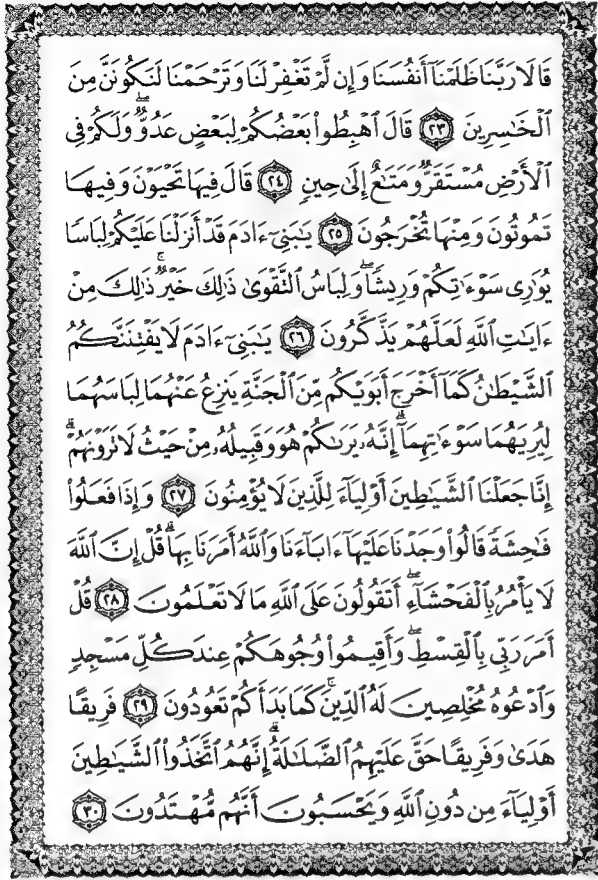 قَالَا رَبَّنَا ظَلَمْنَآ أَنفُسَنَا وَإِن لَّمْ تَغْفِرْ لَنَا وَتَرْحَمْنَا لَنَكُونَنَّ مِنَ
ٱلْخَـٰسِرِينَ ٢٣ قَالَ ٱهْبِطُوا۟ بَعْضُكُمْ لِبَعْضٍ عَدُوٌّ ۖ وَلَكُمْ فِى
ٱلْأَرْضِ مُسْتَقَرٌّ وَمَتَـٰعٌ إِلَىٰ حِينٍ ٢٤ قَالَ فِيهَا تَحْيَوْنَ وَفِيهَا
تَمُوتُونَ وَمِنْهَا تُخْرَجُونَ ٢٥ يَـٰبَنِىٓ ءَادَمَ قَدْ أَنزَلْنَا عَلَيْكُمْ لِبَاسًا
يُوَٰرِى سَوْءَٰتِكُمْ وَرِيشًا ۖ وَلِبَاسُ ٱلتَّقْوَىٰ ذَٰلِكَ خَيْرٌ ۚ ذَٰلِكَ مِنْ
ءَايَـٰتِ ٱللَّهِ لَعَلَّهُمْ يَذَّكَّرُونَ ٢٦ يَـٰبَنِىٓ ءَادَمَ لَا يَفْتِنَنَّكُمُ
ٱلشَّيْطَـٰنُ كَمَآ أَخْرَجَ أَبَوَيْكُم مِّنَ ٱلْجَنَّةِ يَنزِعُ عَنْهُمَا لِبَاسَهُمَا
لِيُرِيَهُمَا سَوْءَٰتِهِمَآ ۗ إِنَّهُۥ يَرَىٰكُمْ هُوَ وَقَبِيلُهُۥ مِنْ حَيْثُ لَا تَرَوْنَهُمْ ۗ
إِنَّا جَعَلْنَا ٱلشَّيَـٰطِينَ أَوْلِيَآءَ لِلَّذِينَ لَا يُؤْمِنُونَ ٢٧ وَإِذَا فَعَلُوا۟
فَـٰحِشَةً قَالُوا۟ وَجَدْنَا عَلَيْهَآ ءَابَآءَنَا وَٱللَّهُ أَمَرَنَا بِهَا ۗ قُلْ إِنَّ ٱللَّهَ
لَا يَأْمُرُ بِٱلْفَحْشَآءِ ۖ أَتَقُولُونَ عَلَى ٱللَّهِ مَا لَا تَعْلَمُونَ ٢٨ قُلْ
أَمَرَ رَبِّى بِٱلْقِسْطِ ۖ وَأَقِيمُوا۟ وُجُوهَكُمْ عِندَ كُلِّ مَسْجِدٍ
وَٱدْعُوهُ مُخْلِصِينَ لَهُ ٱلدِّينَ ۚ كَمَا بَدَأَكُمْ تَعُودُونَ ٢٩ فَرِيقًا
هَدَىٰ وَفَرِيقًا حَقَّ عَلَيْهِمُ ٱلضَّلَـٰلَةُ ۗ إِنَّهُمُ ٱتَّخَذُوا۟ ٱلشَّيَـٰطِينَ
أَوْلِيَآءَ مِن دُونِ ٱللَّهِ وَيَحْسَبُونَ أَنَّهُم مُّهْتَدُونَ ٣٠